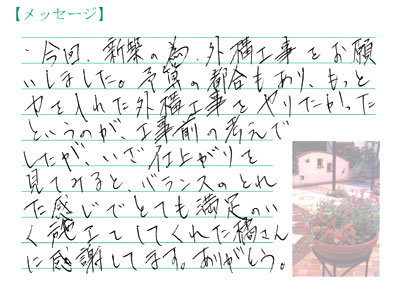 【メッセージ】
・今回、新築の為、外構工事をお願
いしました。予算の都合もあり、もっと
力を入れた外構工事をやりたかった
というのが、工事前の考えで
したが、いざ仕上がりを
見てみると、バランスのとれ
た感じでとても満足のい
く施工をしてくれた橋さん
に感謝してます。ありがとう。